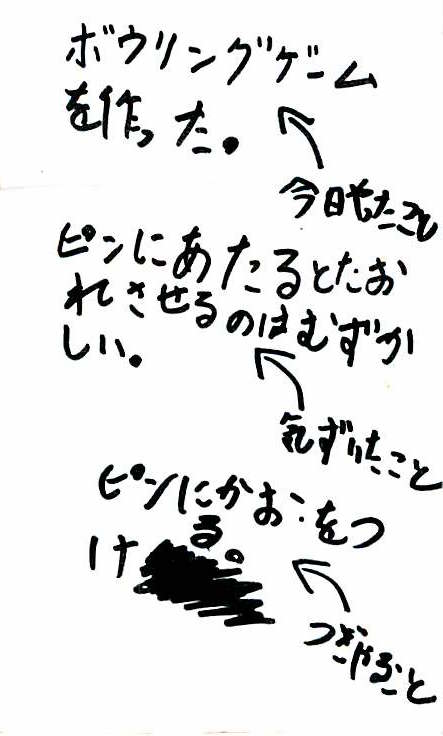 ボウリングゲーム
を作った。
今日やったこと
ピンにあたるとたお
れさせるのはむずか
しい。
気ずいたこと
ピンにかおをつ
ける。
つぎやること